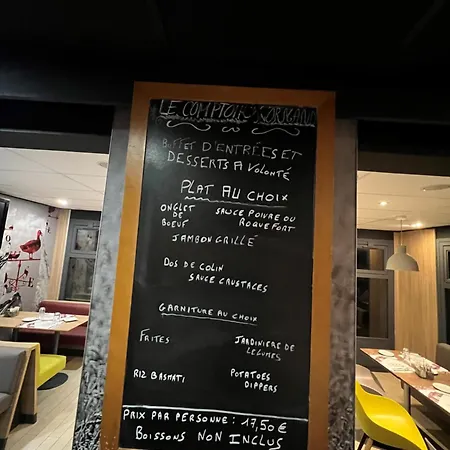 LE COMPTOIR
BUFFET D'ENTRÉES ET
DESSERTS A VOLONTÉ
PLAT AU CHOIX
ONGLET DE BOEUF SAUCE POIVRE OU ROQUEFORT
JAMBON GRILLÉ
DOS DE COLIN
SAUCE CRUSTACES
GARNITURE AU CHOIX
FRITES
JARDINIERE DE
LEGUMES
RIZ BASMATI
POTATOES
DIPPERS
PRIX PAR PERSONNE : 17,50 €
BOISSONS NON INCLUS